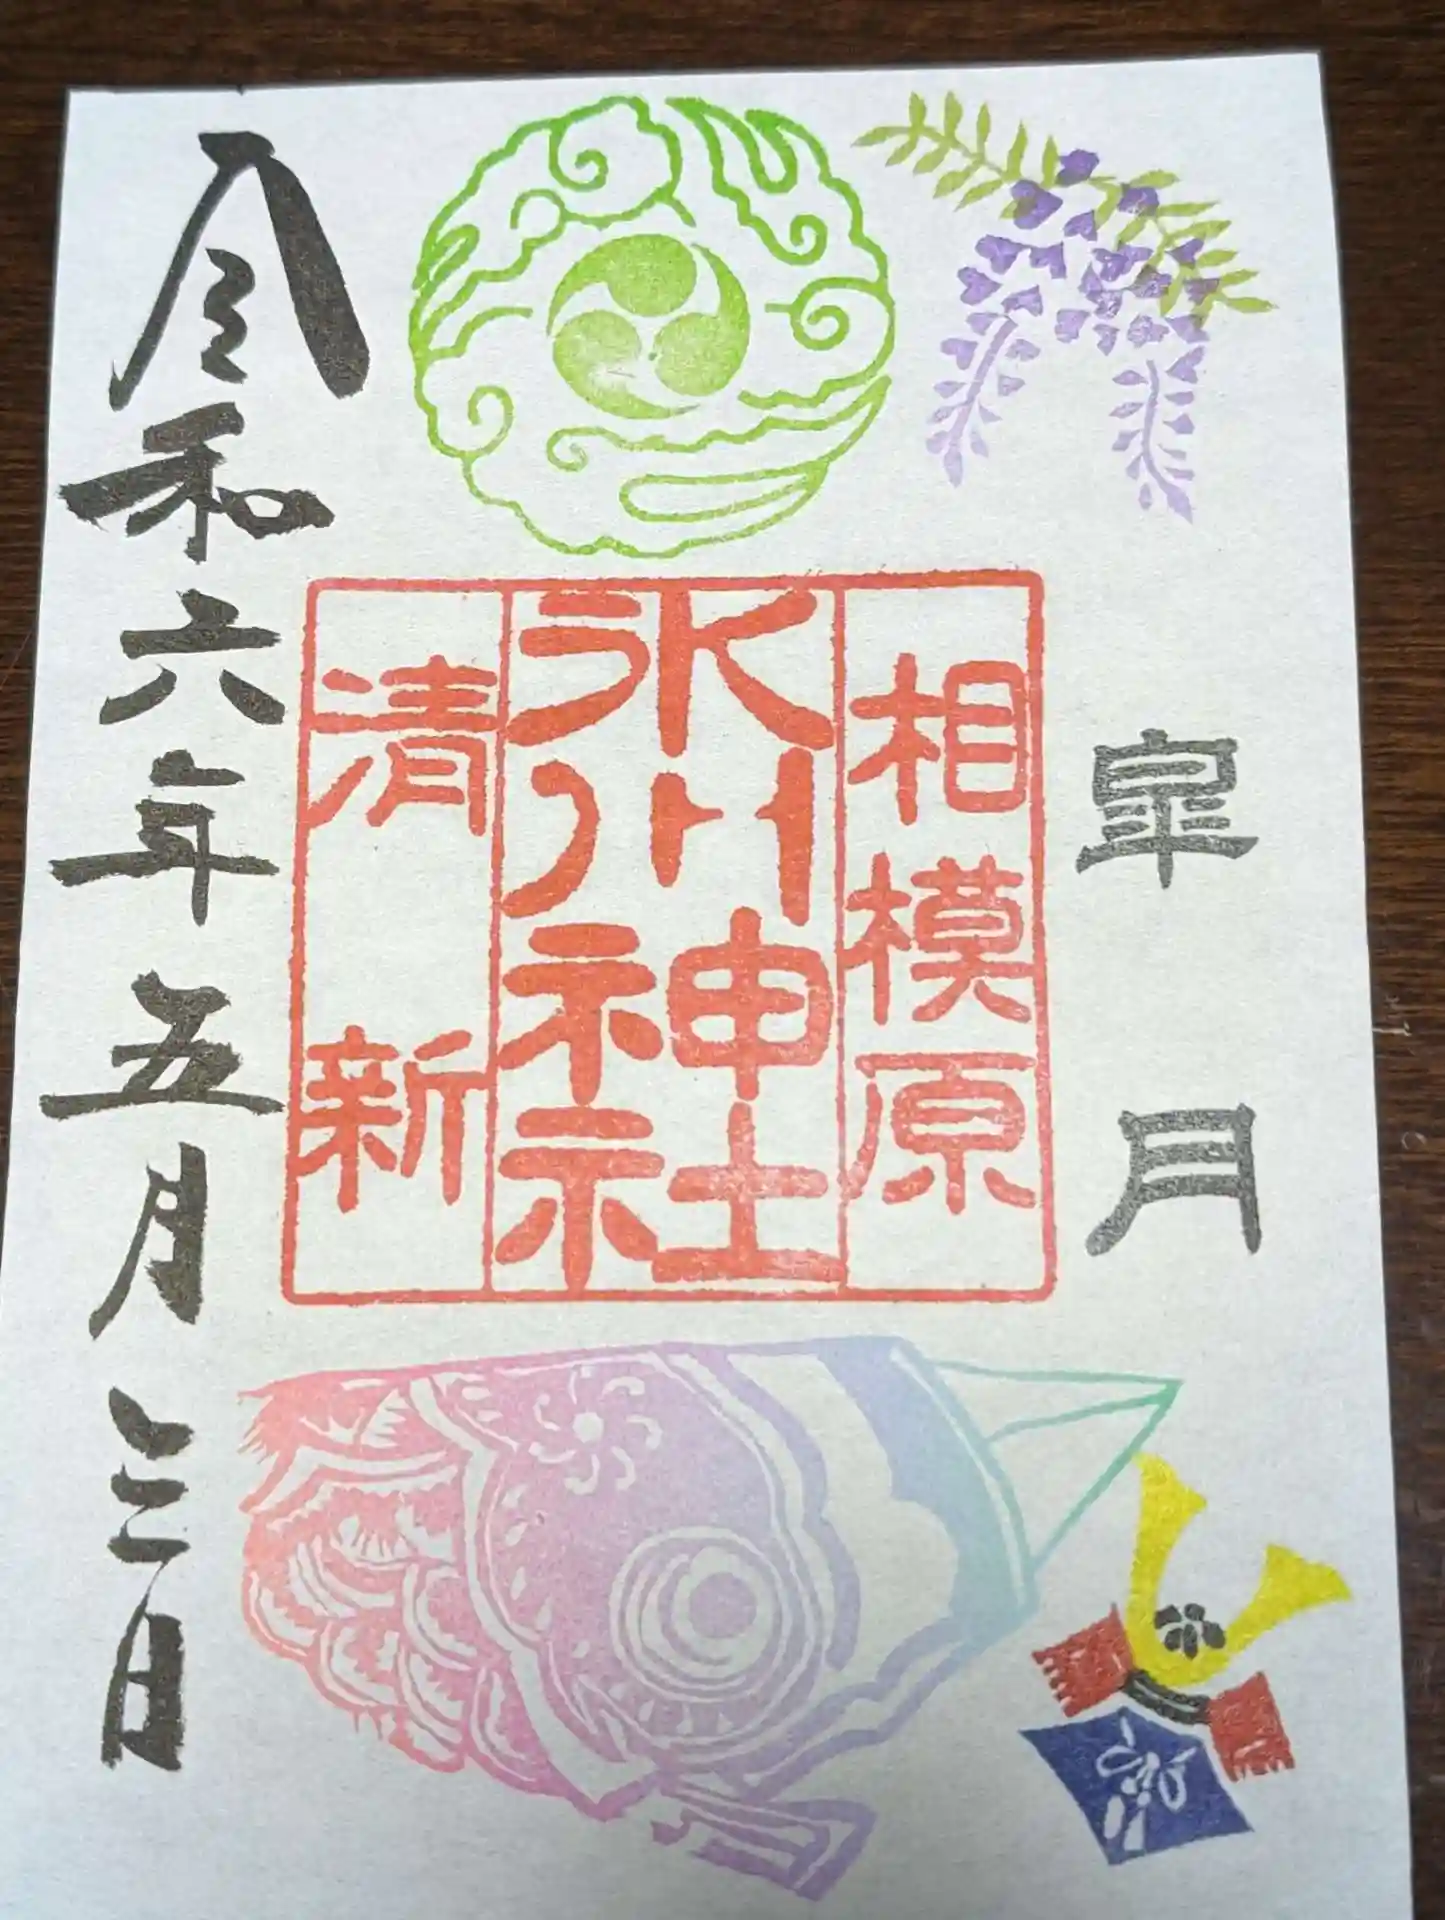 皐月
相模原
氷川神社
清新
令和六年五月三日